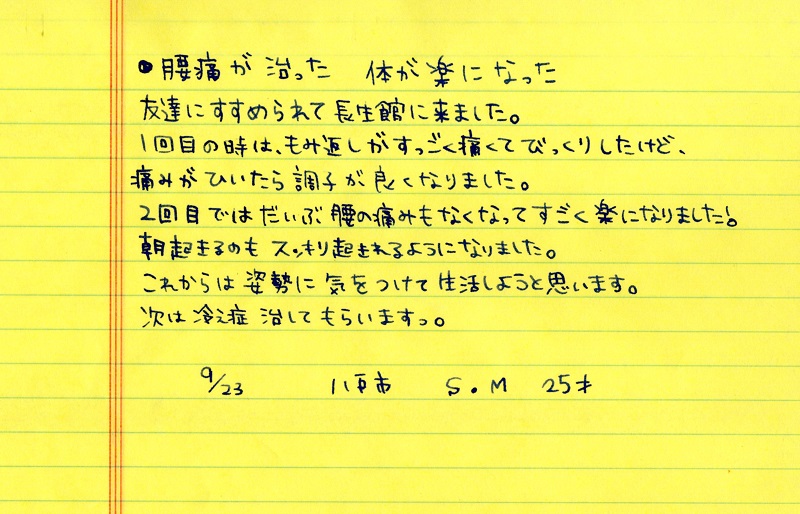 ●腰痛が治った 体が楽になった
友達にすすめられて長生館に来ました。
1回目の時は、もみ返しがすっごく痛くてびっくりしたけど、
痛みがひいたら調子が良くなりました。
2回目ではだいぶ腰の痛みもなくなってすごく楽になりました!。
朝起きるのもスッキリ起きれるようになりました。
これからは姿勢に気をつけて生活しようと思います。
次は冷え症治してもらいますっ。
9/23 八戸市 S.M 25才